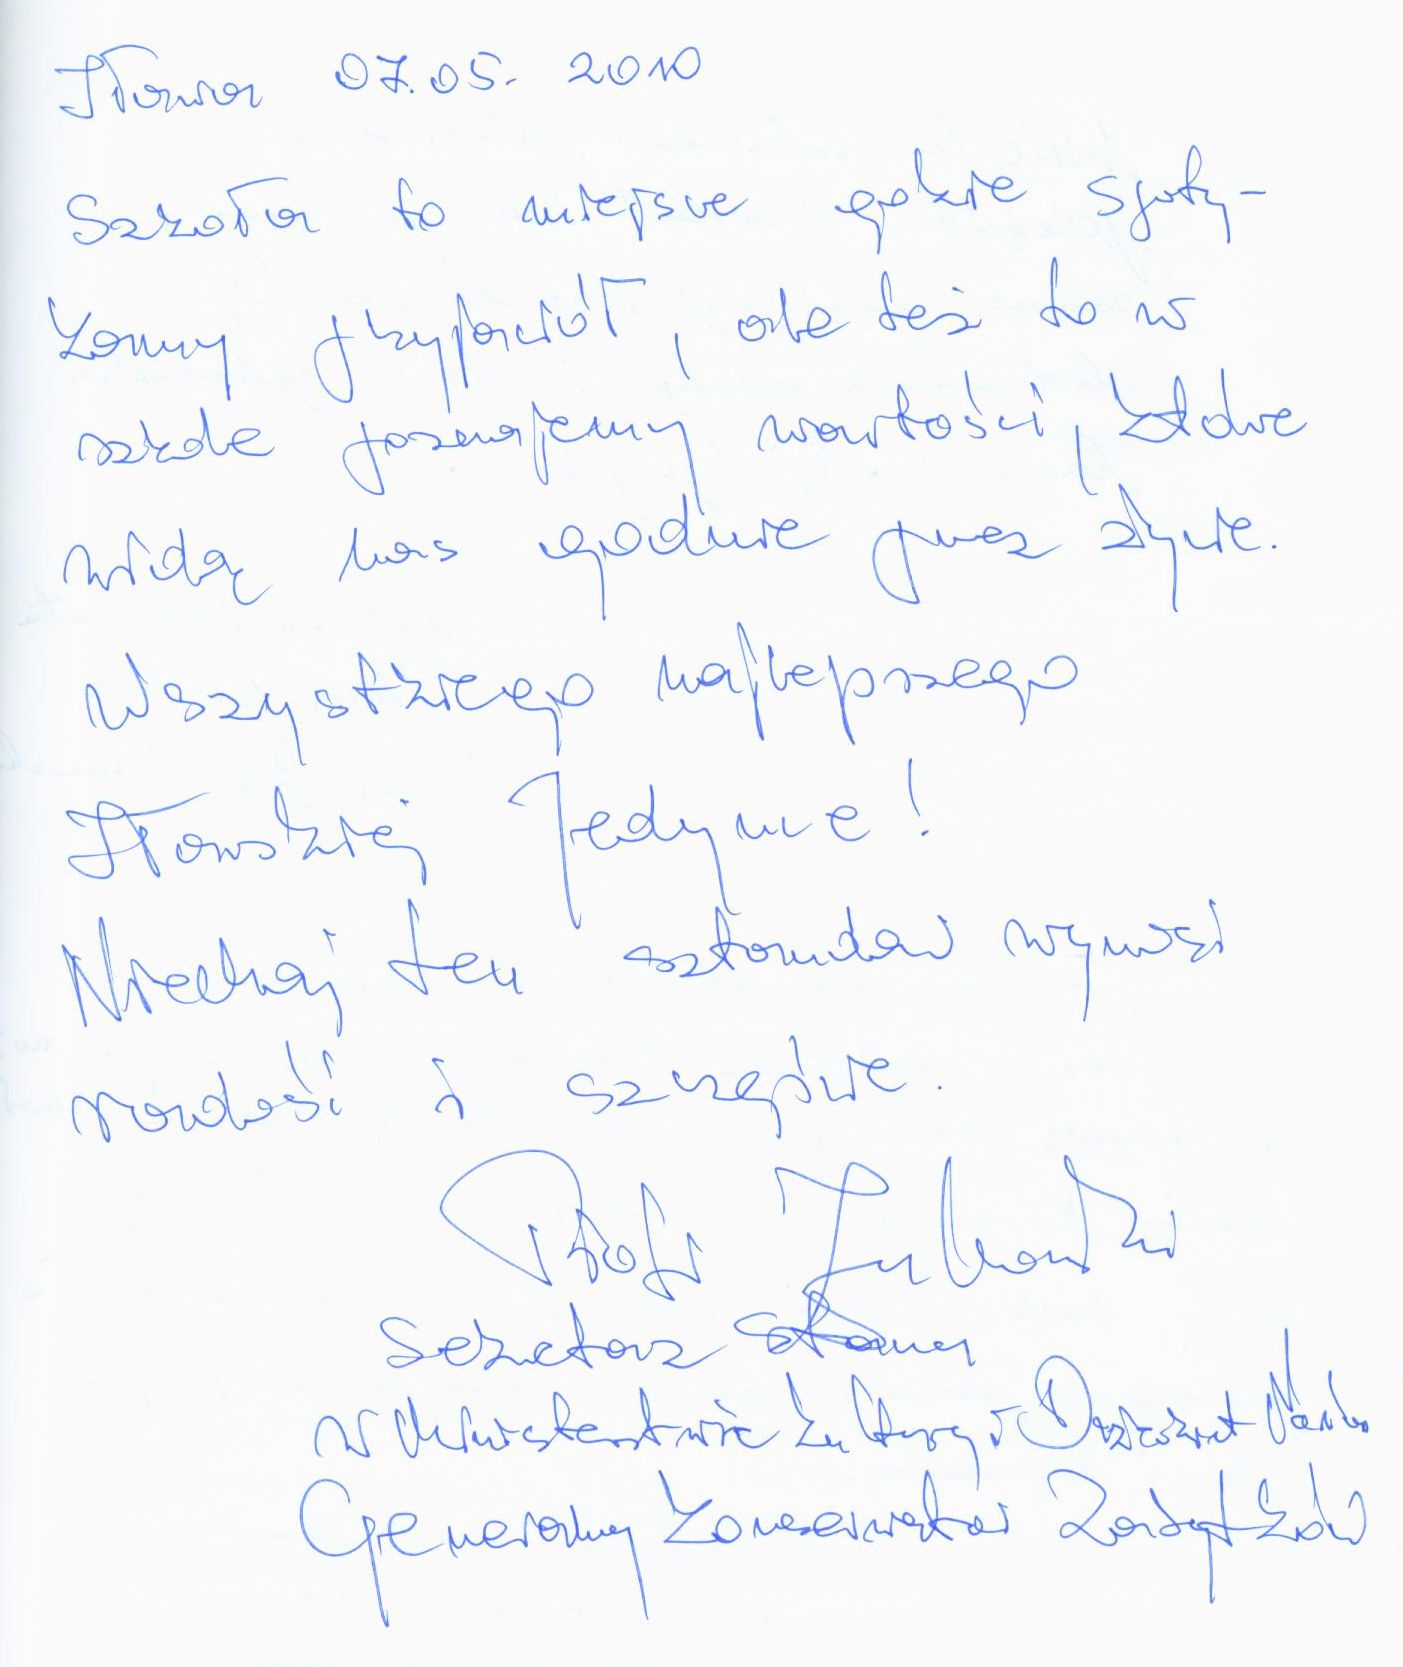 Iława 07.05. 2010
Szkoła to miejsce gdzie spoty-
kamy przyjaciół, ale też to w
szkole poznajemy wartości, które
wiodą nas godnie przez życie.
Wszystkiego najlepszego
Iławskiej Jedynce!
Niechaj ten sztandar wynosi
radość i szczęście.
Piotr Żuchowski
Sekretarz Stanu
w Ministerstwie Kultury i Dziedzict Narod
Generalny Konserwator Zabytków